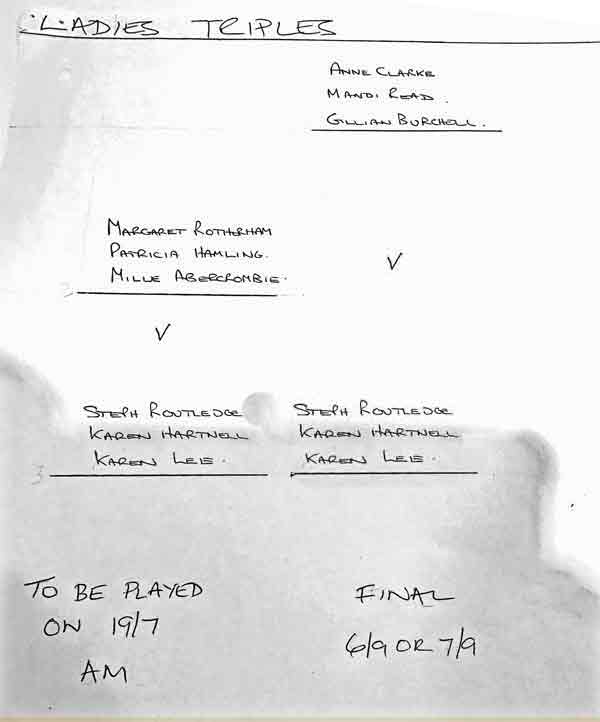 LADIES TRIPLES
ANNE CLARKE
MANDI READ.
GILLIAN BURCHELL.
MARGARET ROTHERHAM
PATRICIA HAMLING.
MILLIE ABERCROMBIE.
V
V
STEPH ROUTLEDGE
KAREN HARTNELL
KAREN LEIE.
STEPH ROUTLEDGE
KAREN HARTNELL
KAREN LEIE.
TO BE PLAYED
ON 19/7
AM
FINAL
6/9 OR 7/9